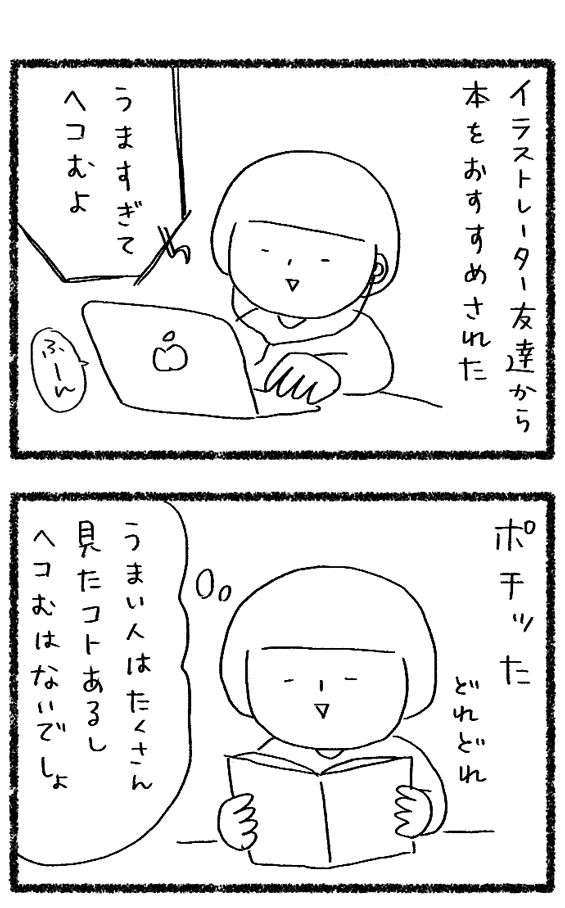 イラストレーター友達から
本をおすすめされた
うますぎて
ヘコむよ
ふーん
ポチッた
どれどれ
うまい人はたくさん
見たコトあるし
ヘコむはないでしょ